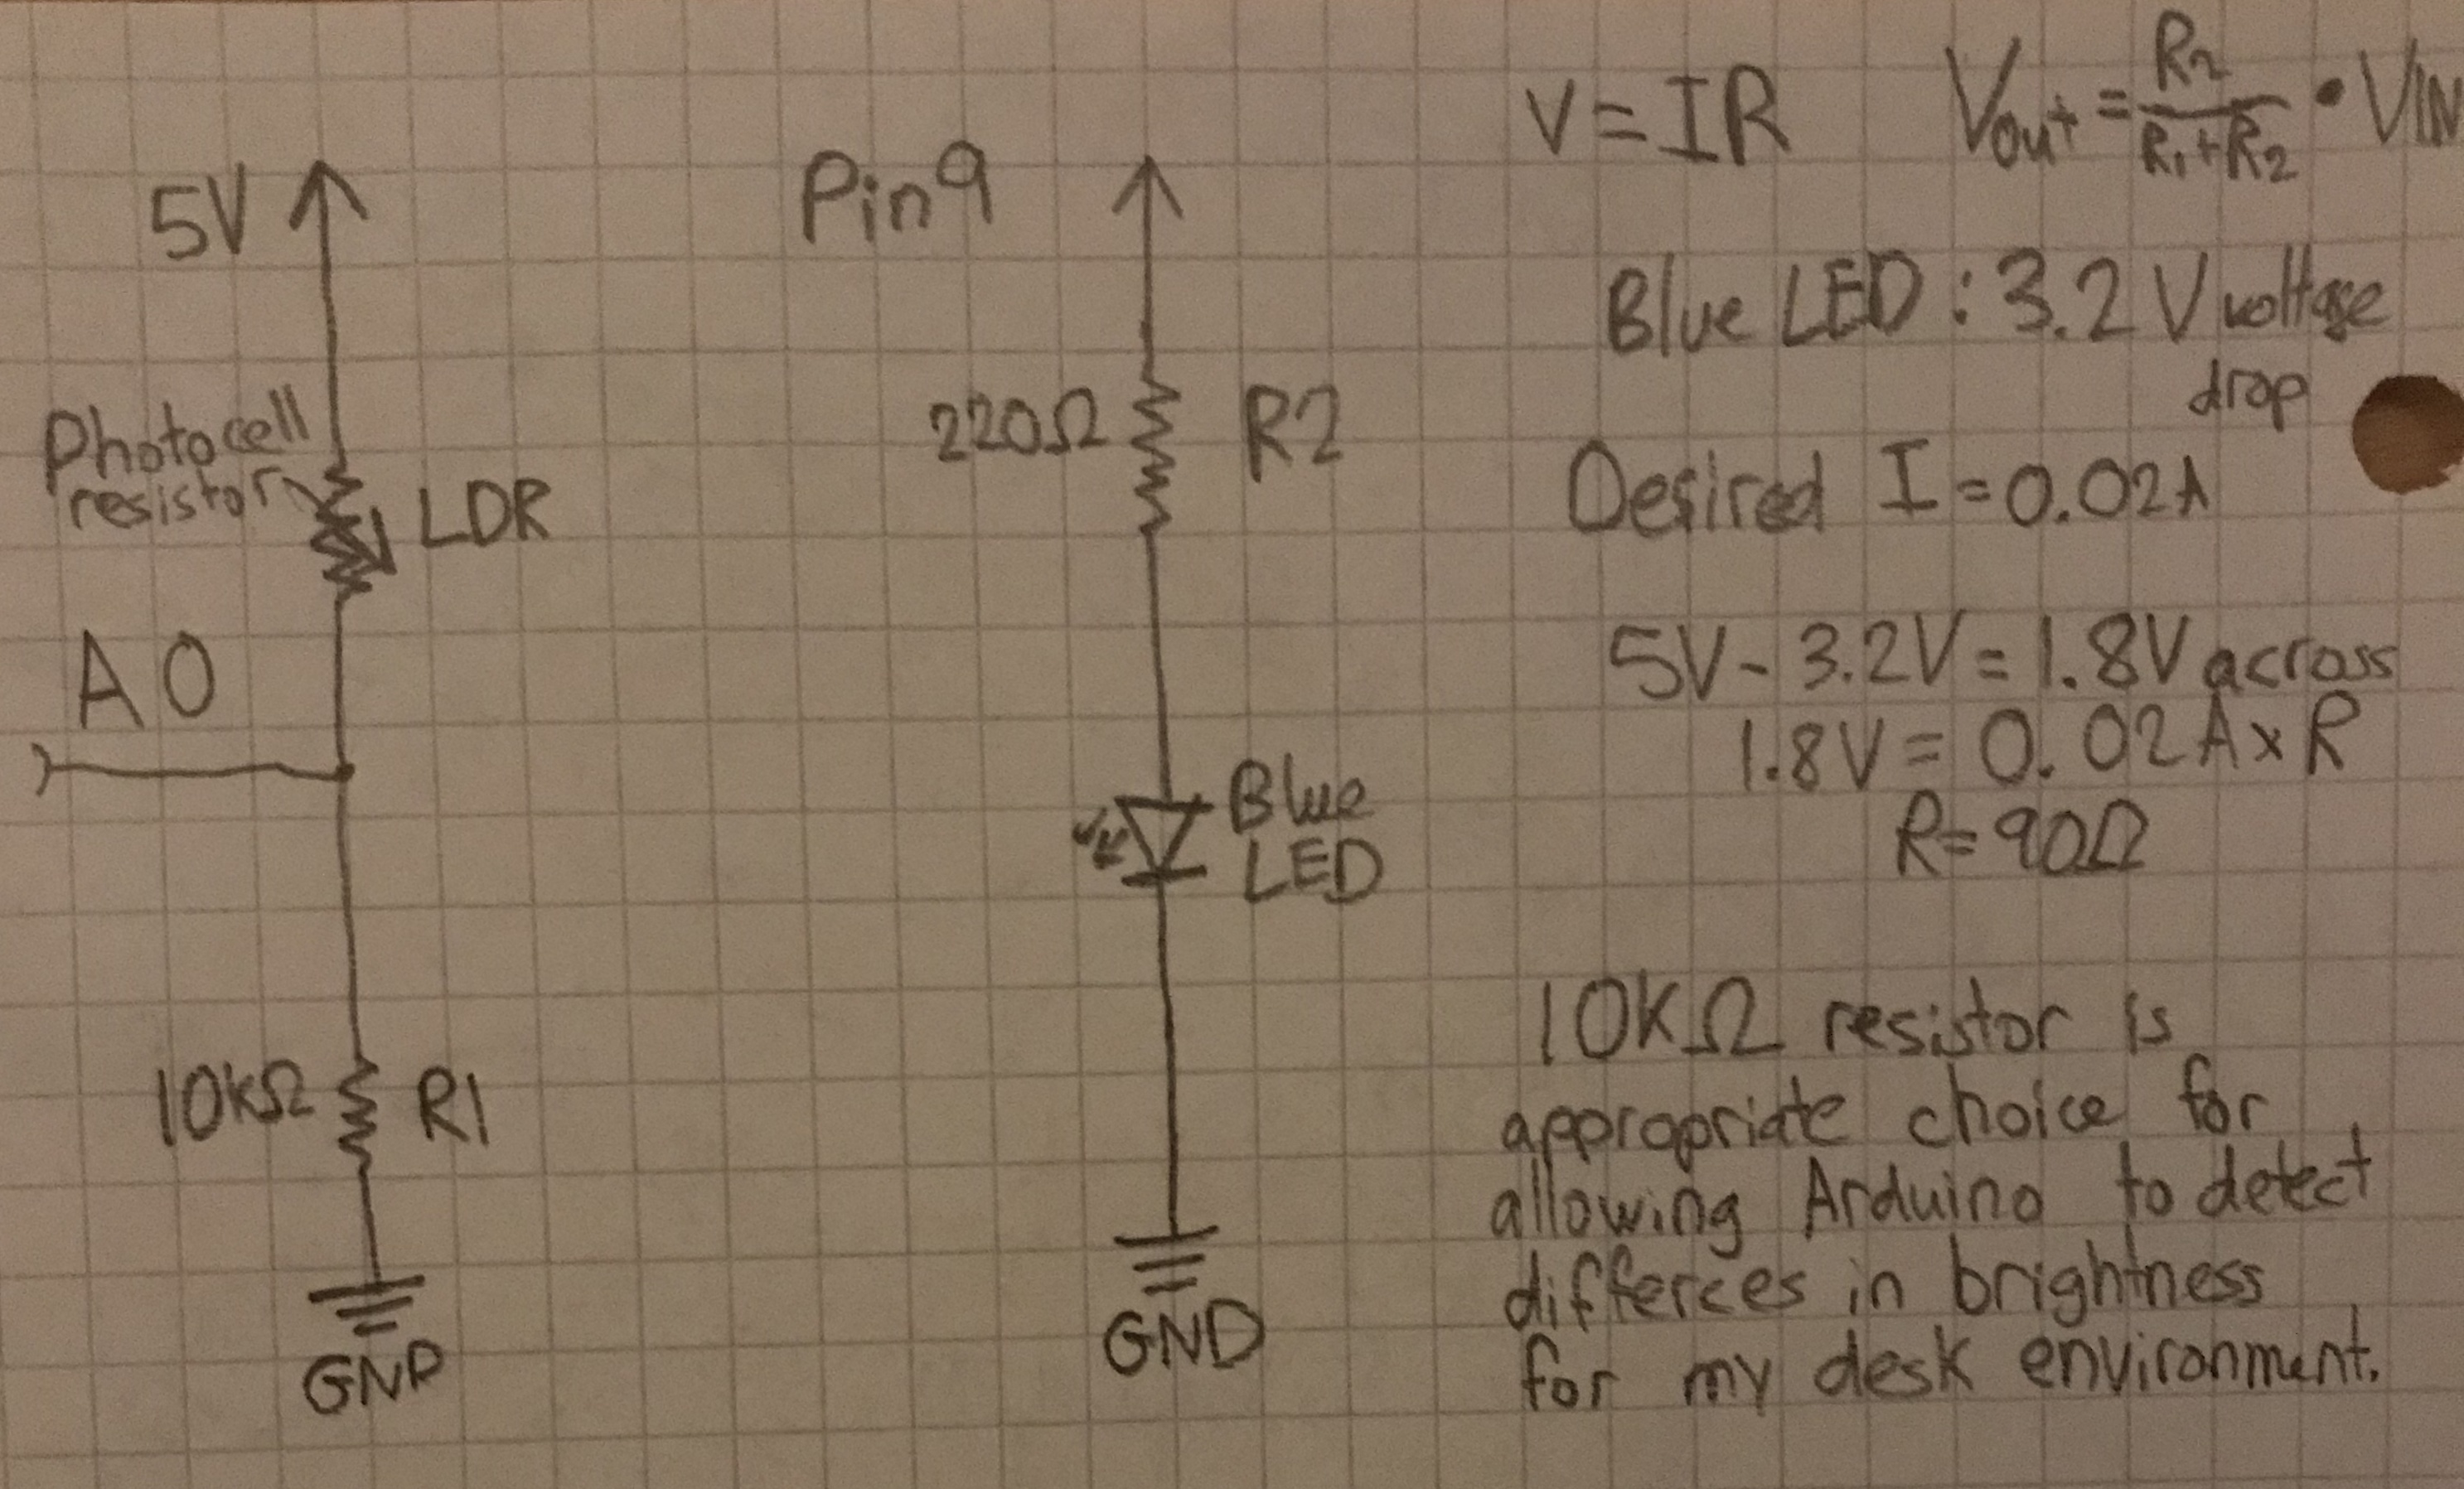 5V
Photocell
resistor
LDR
A0
10kΩ
R1
GND
Pin 9
220Ω
R2
Blue
LED
GND
V = IR
Vout = R2 / R1 + R2 • VIN
Blue LED : 3.2 V voltage
drop
Desired I = 0.02A
5V - 3.2V = 1.8V across
1.8V = 0.02A x R
R = 90Ω
10KΩ resistor is
appropriate choice for
allowing Arduino to detect
differces in brightness
for my desk environment.